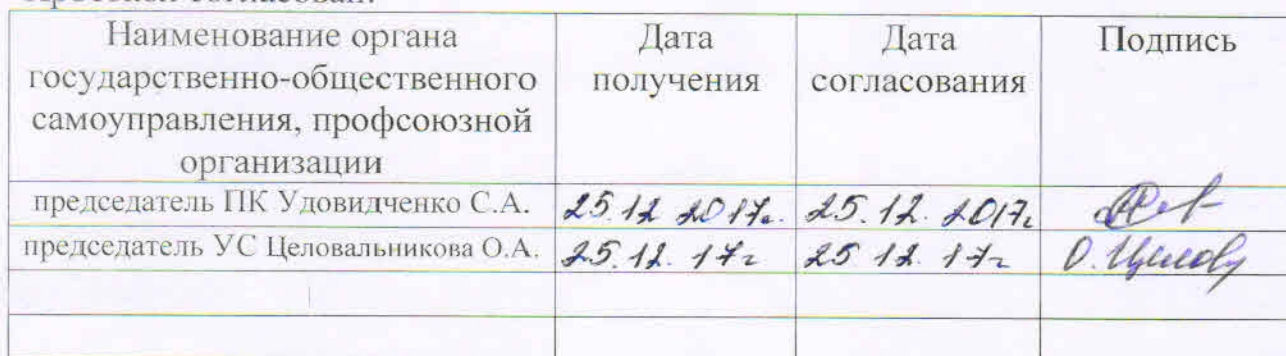 Наименование органа
государственно-общественного
самоуправления, профсоюзной
организации
Дата
получения
Дата
согласования
Подпись
председатель ПК Удовидченко С.А. 25.12 2017г. 25.12. 2017г
председатель УС Целовальникова О.А. 25.12. 17г 25.12. 17г О. Целов